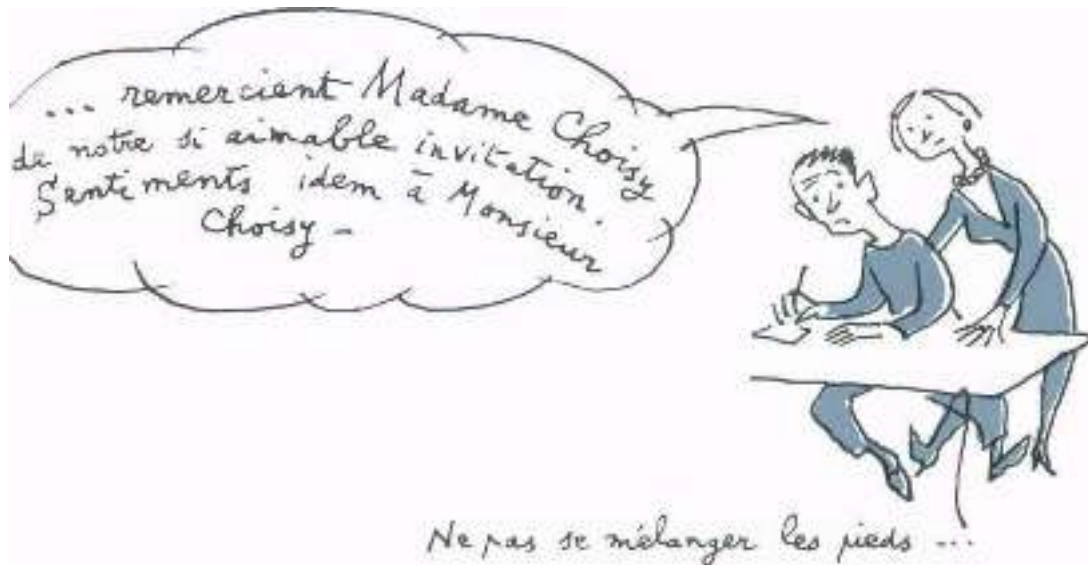 ... remercient Madame Choisy
de notre si aimable invitation.
Sentiments idem à Monsieur
Choisy -
Ne pas se mélanger les pieds ...